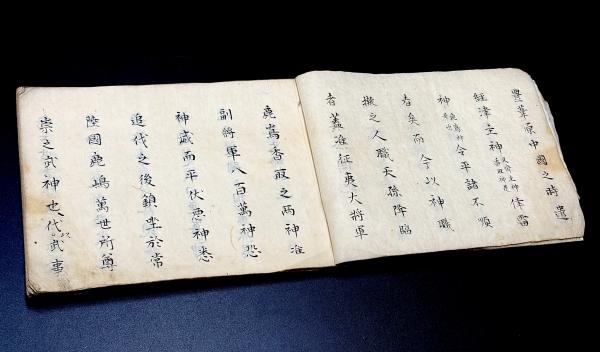 豐葦原中國之時遣
經津主神 健雷
神 鹿嶌神是也 令平諸不順
者矣而今以神職
擬之人職天孫降臨
者蓋准征夷大將軍
鹿嶌香取之两神准
副將軍八百萬神恐
神威而平伏惡神悉
追伐之後鎮坐於常
陸國鹿嶋萬世所尊
崇之武神也代以武事